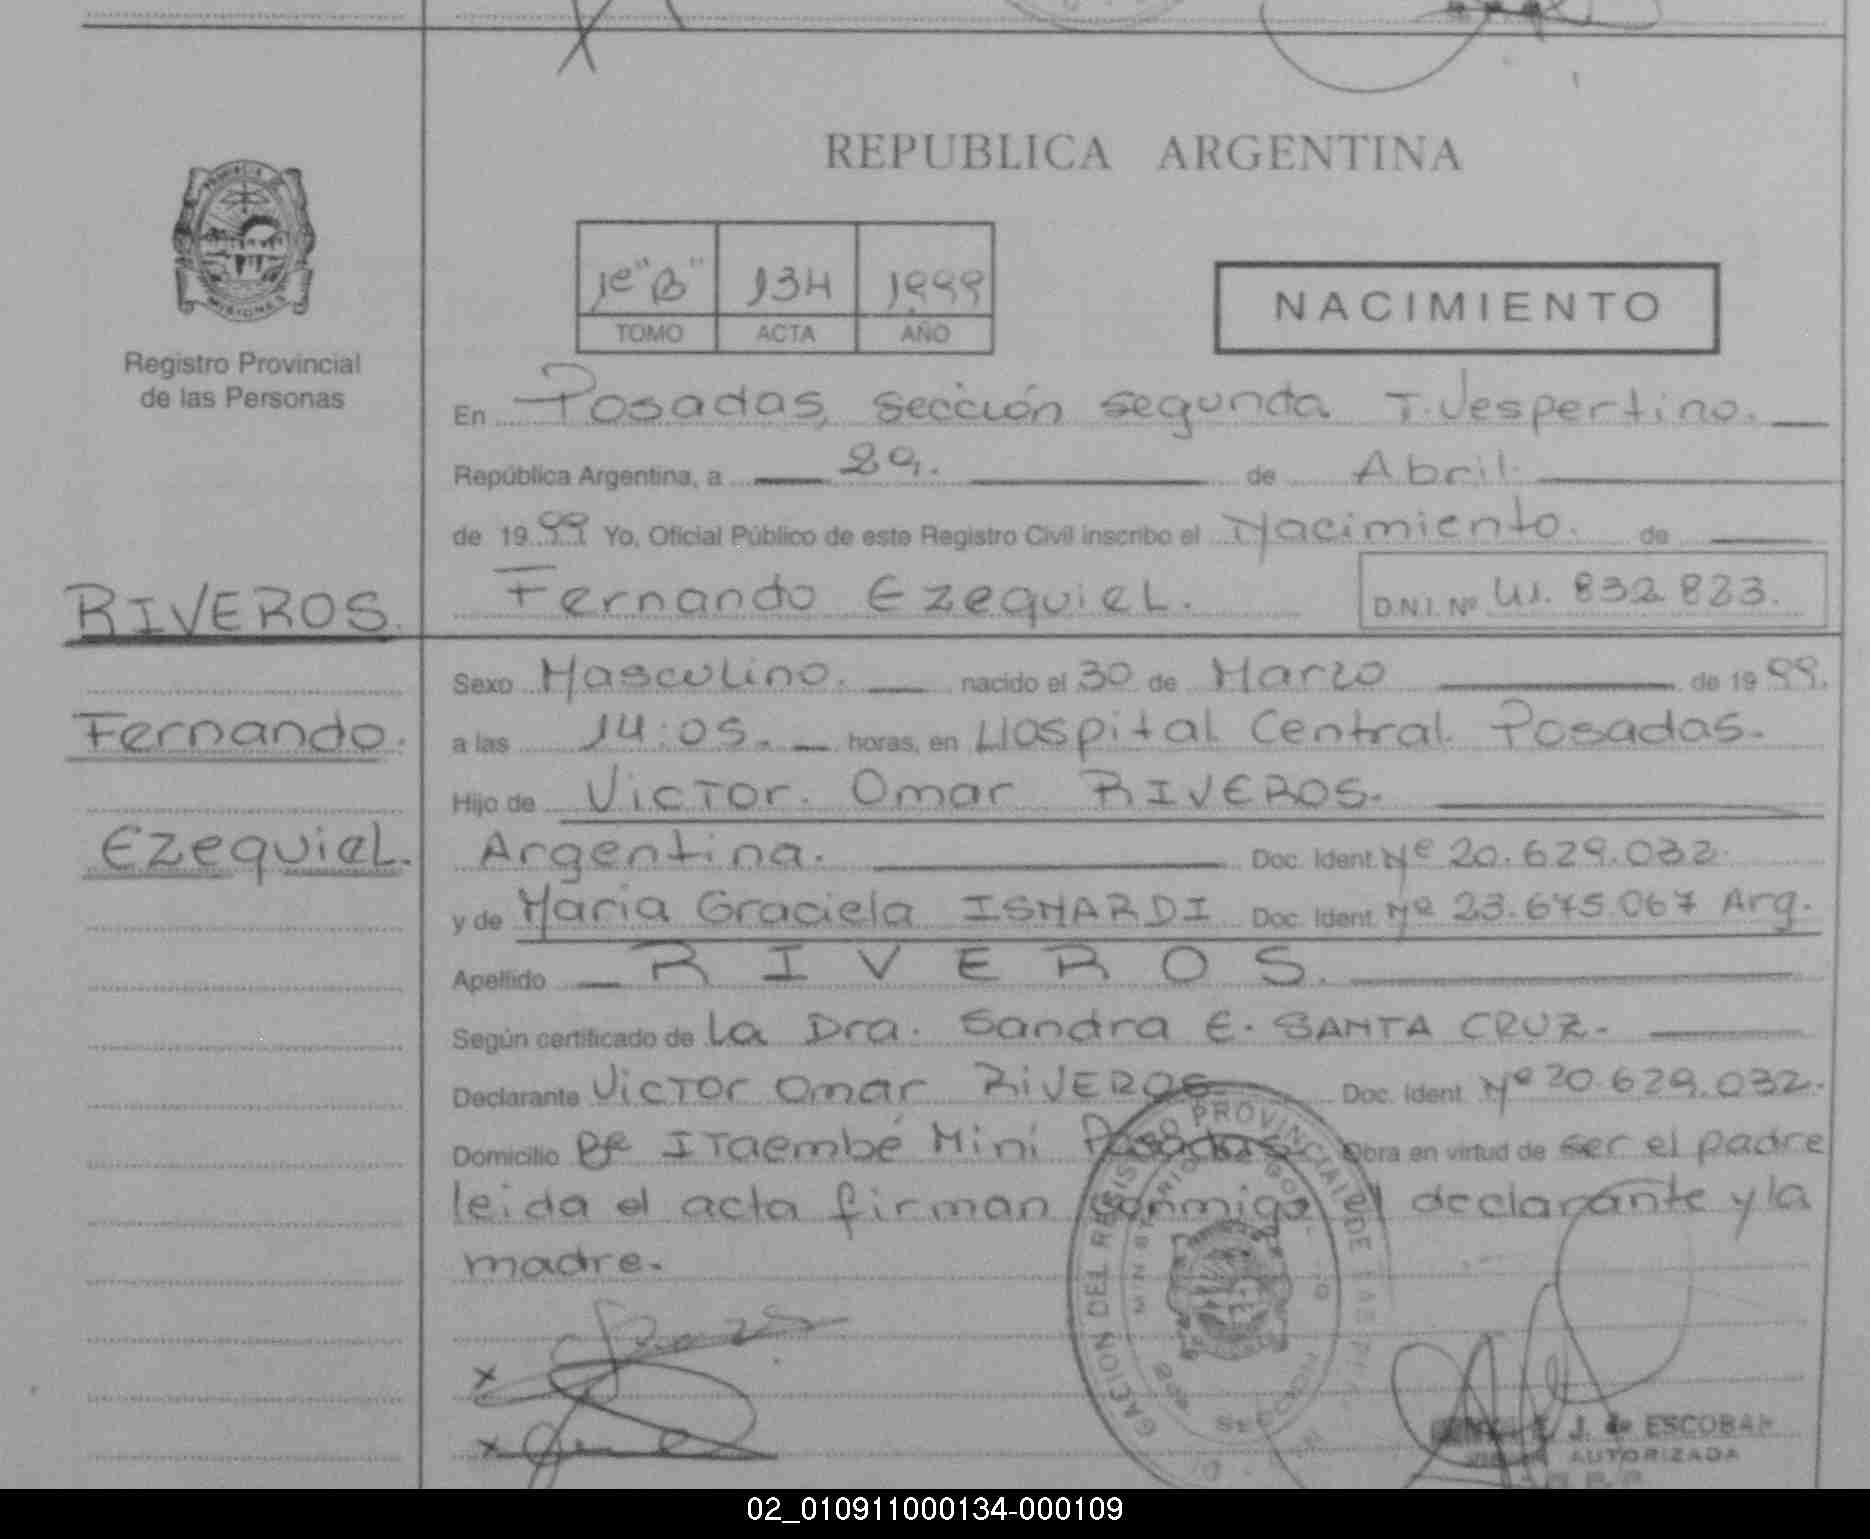 REPUBLICA ARGENTINA
PROVINCIA DE
MISIONES
Registro Provincial
de las Personas
1º "B" 134 1999
TOMO ACTA AÑO
NACIMIENTO
En Posadas, sección segunda T. Vespertino.
República Argentina, a 29. de Abril.
de 1999 Yo, Oficial Público de este Registro Civil inscribo el Nacimiento. de
RIVEROS.
Fernando Ezequiel.
D.N.I. Nº 41.832.823.
Sexo Masculino. nacido el 30 de Marzo de 1999.
Fernando.
a las 14:05. horas, en Hospital Central Posadas.
Hijo de Victor. Omar RIVEROS.
Ezequiel.
Argentina. Doc. Ident. Nº 20.629.032.
y de Maria Graciela ISMARDI Doc. Ident. Nº 23.675.067 Arg.
Apellido RIVEROS.
Según certificado de La Dra. Sandra E. SANTA CRUZ.
Declarante Victor Omar RiVEROS Doc. Ident. Nº 20.629.032.
Domicilio Bº ITaembé Mini Posadas Obra en virtud de ser el padre
leida el acta firman conmigo el declarante y la
madre.
J. de ESCOBAR
AUTORIZADA
02_010911000134-000109